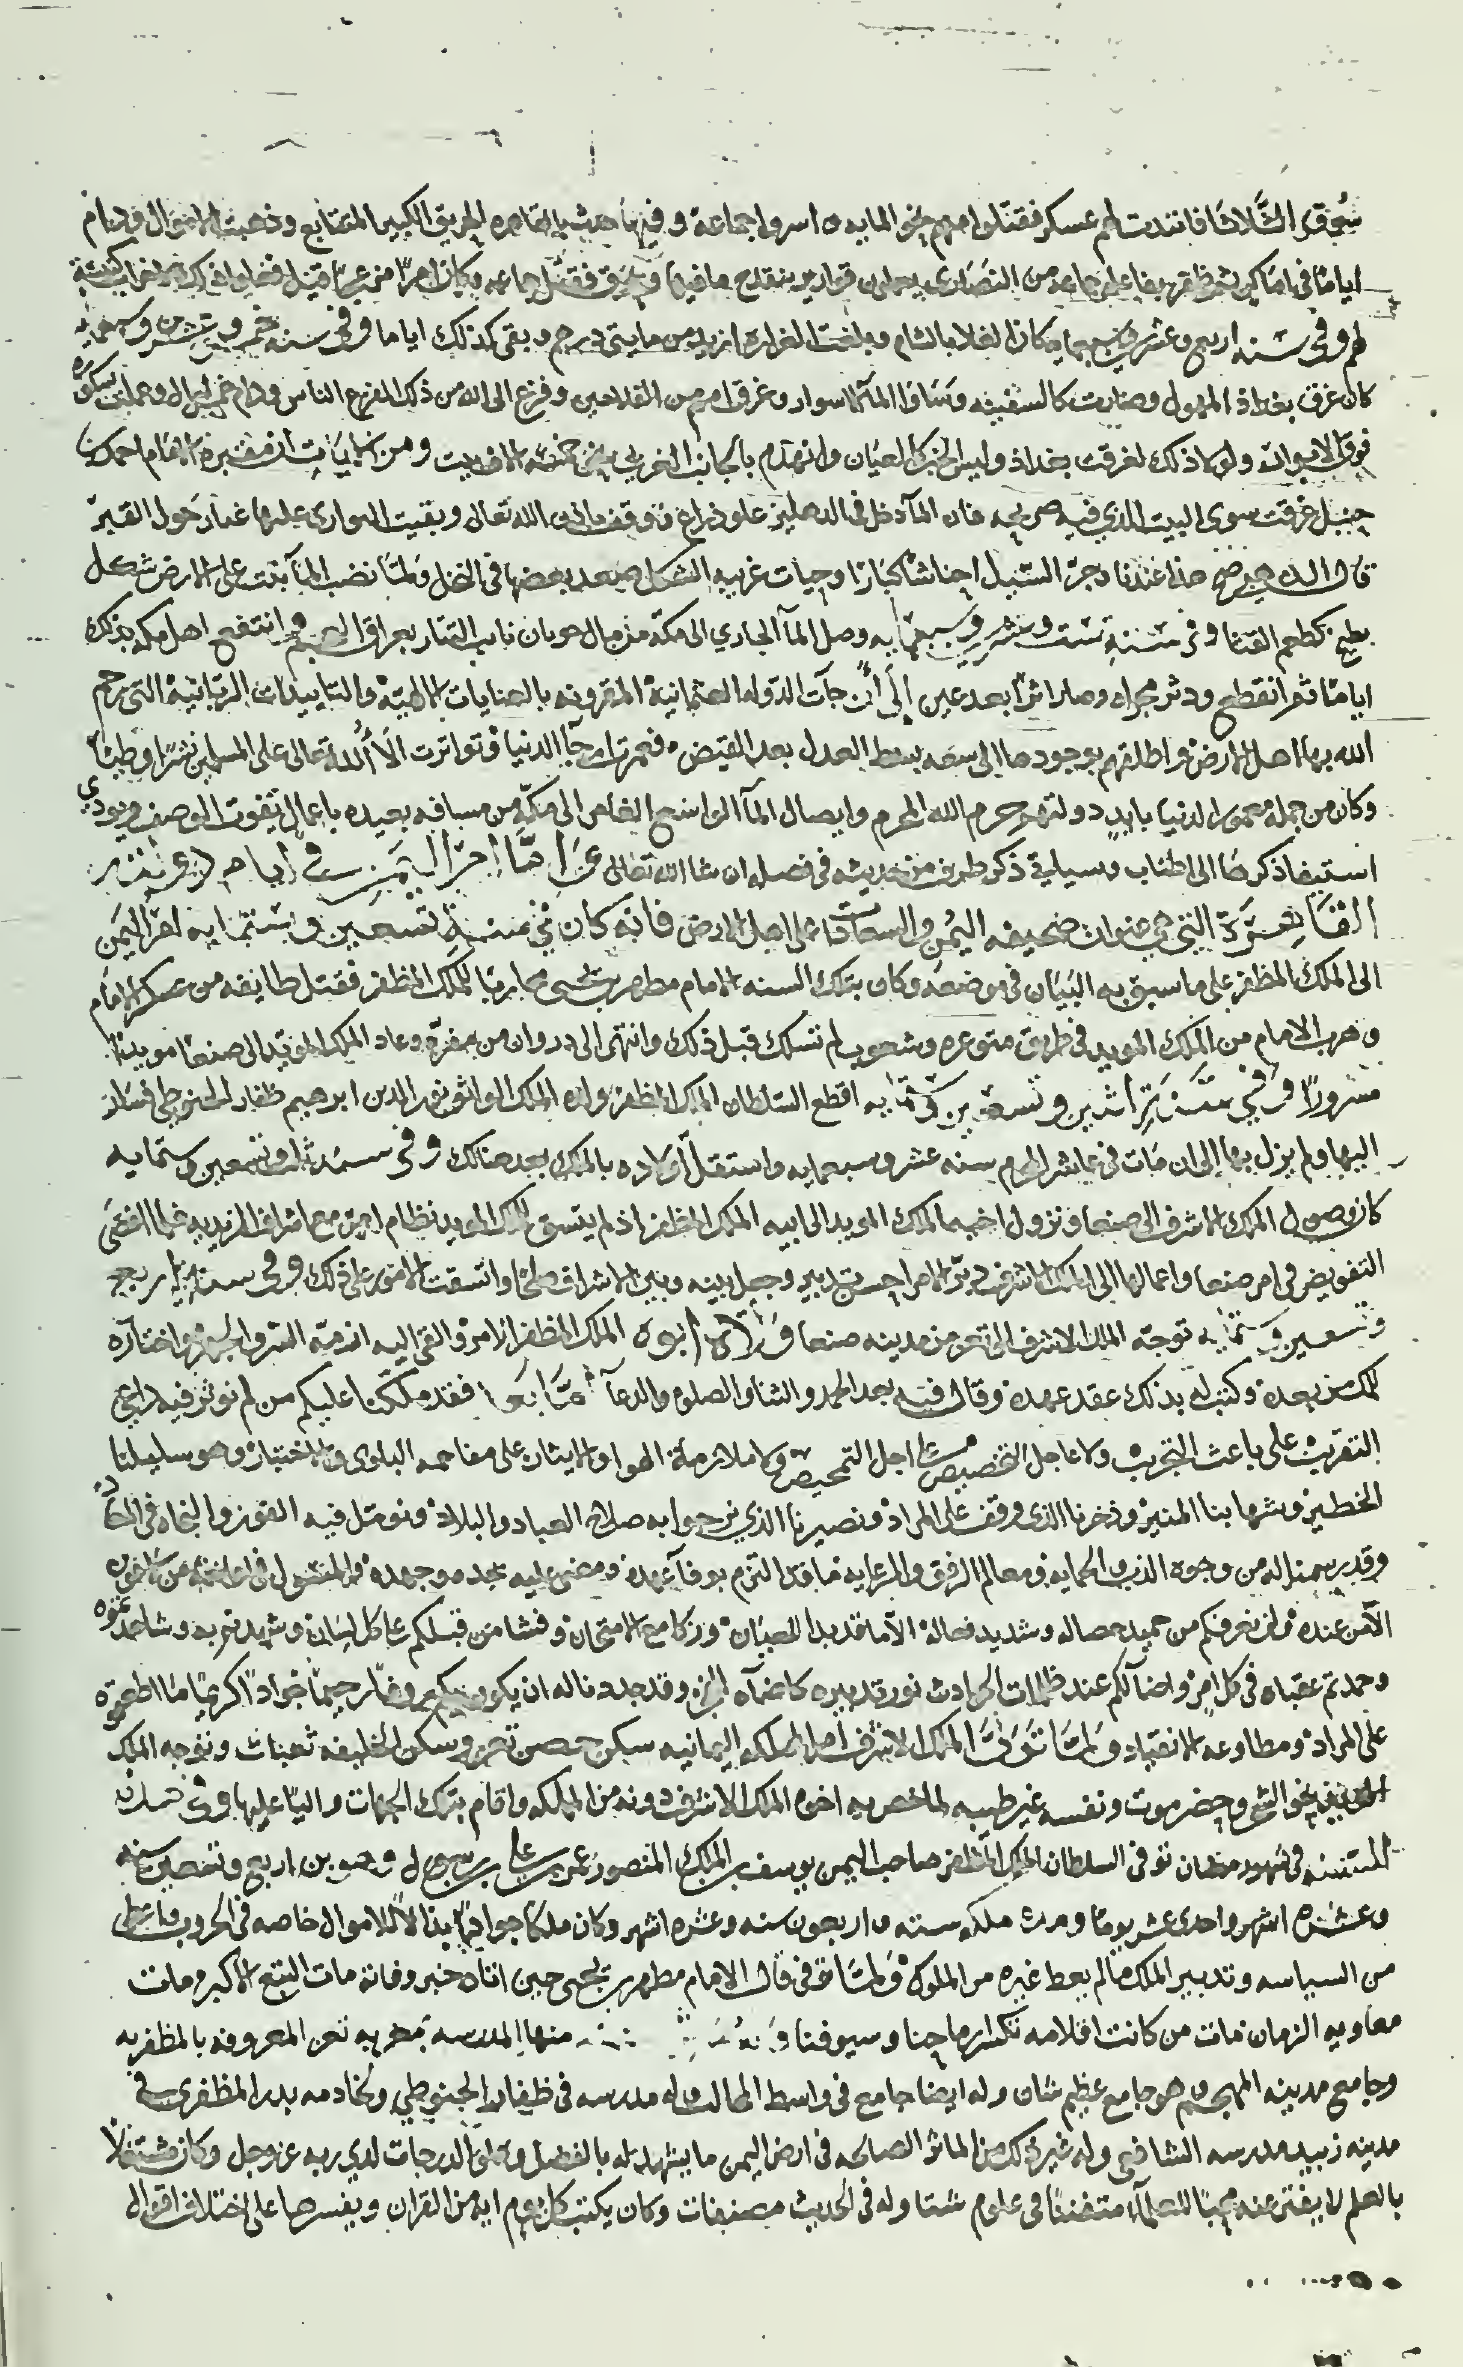 سوق الثلاثا فانتدب لهم عسكر فقتلوا منهم نحو المايه واسروا جماعة وفيها حدث بالقاهره الحريق الكبير المتتابع وذهبت الاموال ودام
اياما في اماكن ثم ظفر بفاعله جماعه من النصارى يعملون قوارير ينقدح ما فيها ويحرق فقتل جماعه
لهم وفي سنه اربع وعشرين وسبعمايه كان الغلا بالشام وبلغت الغراره ازيد من مايتي درهم وبقي كذلك اياما وفي سنه خمس وعشرين وسبعمايه
كان غرق بغداذ المهول وصارت كالسفينه وساوا الما الاسوار وغرق امم من الفلاحين وفزع الى الله من ذلك الناس ودام خمس ليال وعملت سكوره
فوق الاسوار ولولا ذلك لغرقت بغداذ وليس الخبر كالعيان وانهدم بالجانب الغربي نحو خمسة الاف بيت ومن الايات ان مقبرة الامام احمد بن
حنبل غرقت سوى البيت الذي فيه ضريحه فان الما دخل في الدهليز علو ذراع ووقف باذن الله تعالى وبقيت البواري عليها غبار حول القبر
قال الذهبي صح هذا عندنا وجر السيل اخشابا كبارا وحيات غريبه الشكل صعد بعضها في النخل ولما نضب الما نبتت على الارض شكل
بطيخ كطعم القثا وفي سنة ست وعشرين وسبعمايه وصل الما الجاري الى مكة من مال جوبان نايب التتار بعراق العجم وانتفع اهل مكه بذلك
اياما ثم انقطع ودثر مجراه وصار اثرا بعد عين الى ان جات الدوله العثمانية المقرونه بالعنايات الالهية والتاييدات الربانية التي رحم
الله بها اهل الارض واطلقهم بوجودها الى سعه بسط العدل بعد القبض فعمرت ارجا الدنيا وتواترت الا الله تعالى على المسلمين نشرا وطيا
وكان من جملة معمور الدنيا بايد دولتهم حرم الله المحرم وايصال الما الواسع الغامر الى مكة من مسافه بعيده باعمال تفوت الوصف ويودي
استيفا ذكرها الى اطناب وسياتي ذكر طرف من حديثه في فصله ان شا الله تعالى عن اما امر اليمن في ايام
التي هي عنوان صحيفه اليمن والسعادات على اهل الارض فانه كان في سنة تسعين وستمايه امر اليمن
الى الملك المظفر على ما سبق به البيان في موضعه وكان بتلك السنه الامام مطهر بن يحيى محاربا للملك المظفر فقتل طايفه من عسكر الامام
وهرب الامام من الملك المويد في طريق متوعره وشعوب لم تسلك قبل ذلك وانتهى الى دروان من وعاد الملك المويد الى صنعا مويدا
مسرورا وفي سنة اثنين وتسعين وستمايه اقطع السلطان الملك المظفر ولده الملك الواثق نور الدين ابرهيم ظفار الحبوظي فسار
اليها ولم يزل بها الى ان مات في عاشر المحرم سنه عشر وسبعمايه واستقل اولاده بالملك بعد هنالك وفي سنه ثلث وتسعين وستمايه
كان وصول الملك الاشرف الى صنعا ونزول اخيه الملك المويد الى ابيه الملك المظفر اذ لم يتسق للملك المويد نظام امره مع اشراف الزيديه فلما افضى
التفويض في امر صنعا واعمالها الى الملك الاشرف دبر الامر احسن تدبير وجعل بينه وبين الاشراف صلحا واتسقت الامور على ذلك وفي سنة اربع
وتسعين وستمايه توجه الملك الاشرف الى تعز من مدينه صنعا وولاه ابوه الملك المظفر الامر والقى اليه ازمة السر والجهر واختاره
للملك من بعده وكتب له بذلك عقد عهده وقال فيه بعد الحمد والثنا والصلوه والدعا اما بعد فقد ملكنا عليكم من لم نوثر فيه داعي
التقريب على باعث التجريب ولا عاجل التخصيص على اجل التمحيص ولا ملازمة الهوا والايثار على مفاحمه البلوى والاختبار وهو سليلنا
الخطير وشهابنا المنير وذخرنا الذي وقف على المراد ونصيرنا الذي نرجوا به صلاح العباد والبلاد ونومل فيه الفوز والنجاه في المعاد
وقد رسمنا له من وجوه الذب والحمايه ومعالم الرفق والرعايه ما قد التزم بوفا عهده ومضى عليه بجده وجهده والمسئول في اعانته من لا عون
الا من عنده ولن نعرفكم من حميد خصاله وسديد فعاله الا ما قد بدا للعيان وزكا مع الامتحان وفشا من قبلكم على كل لسان
وحمدتم عقباه في كل امر واضا لكم عند ظلمات الحوادث نور تدبيره وقد حددنا له ان يكون بكم روفا رحيما جوادا كريما ما اطعتموه
على المراد ومطاوعه الانقياد ولما تولى الملك الاشرف امر المملكه اليمانيه سكن حصن تعز وسكن الخليفه ثعبات وتوجه الملك
المويد نحو الشحر وحضرموت ونفسه غير طيبه لما خص به اخوه الملك الاشرف دونه من المملكه واقام بتلك الجهات واليا عليها وفي هذه
السنه في شهر رمضان توفي السلطان الملك المظفر صاحب اليمن يوسف بن الملك المنصور عمر بن علي بن رسول وهو بن اربع وتسعين سنه
وعشره اشهر واحدى عشر يوما ومده ملكه سته واربعون سنه وعشره اشهر وكان ملكا جوادا بذالا للاموال خاصه في الحروب واعطي
من السياسه وتدبير الملك ما لم يعط غيره من الملوك ولما توفي قال الامام مطهر بن يحيى حين اتاه خبر وفاته مات التبع الاكبر ومات
معاويه الزمان مات من كانت اقلامه تكسر رماحنا وسيوفنا منها المدرسه بمغربه تعز المعروفه بالمظفريه
وجامع مدينه المهجم وهو جامع عظيم شان وله ايضا جامع في واسط المحالب وله مدرسه في ظفار الحبوظي ولخادمه بدر المظفري في
مدينه زبيد مدرسه الشافعي وله غير ذلك من الماثر الصالحه في ارض اليمن ما يشهد له بالفضل وعلو الدرجات لدي ربه عز وجل وكان مشتغلا
بالعلم لا يفتر عنه محبا للعلما متفننا في علوم شتا وله في الحديث مصنفات وكان يكتب كل يوم ايه من القران ويفسرها على اختلاف اقوال